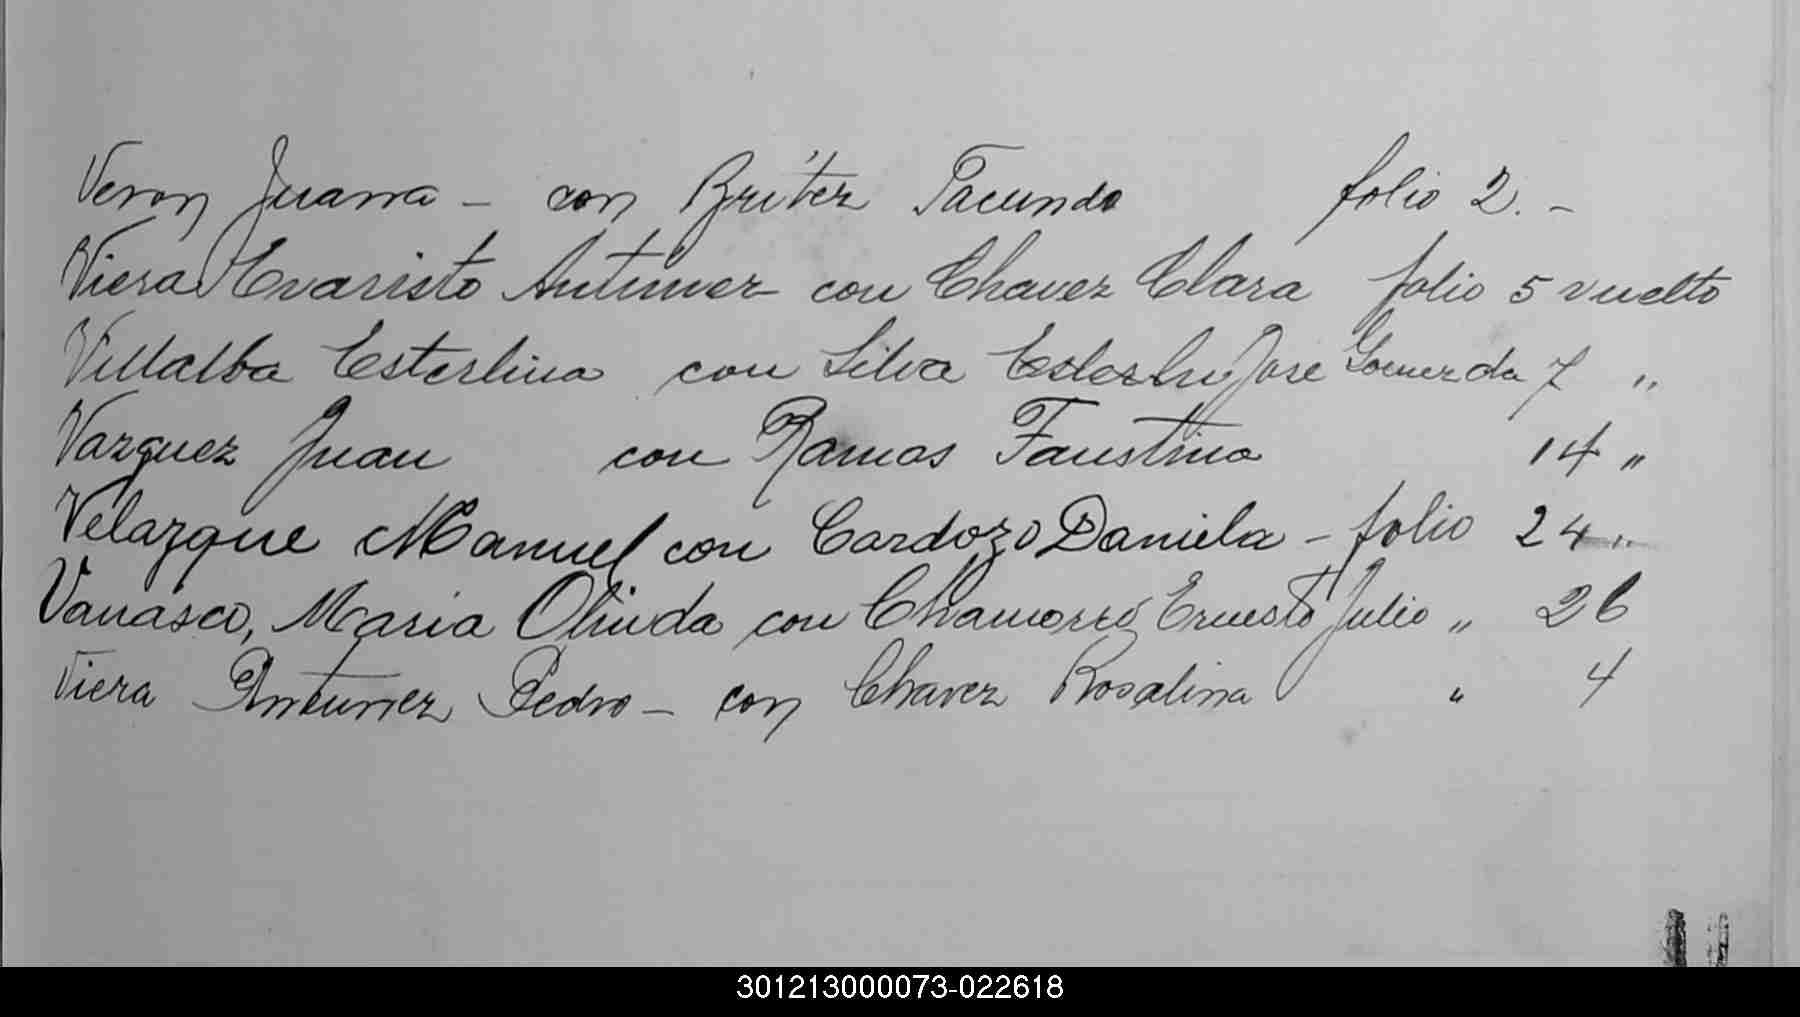 Veron Juana - con Britez Facundo folio 2. -
Viera Evaristo Antunez con Chavez Clara folio 5 vuelto
Villalba Esterlina con Silva José Gomez da 7 "
Vazquez Juan con Ramos Faustino 14 "
Velazque Manuel con Cardozo Daniela - folio 24 "
Vanasco, Maria Olinda con Chamorro Ernesto Julio " 26
Viera Antunez Pedro - con Chavez Rosalina " 4
301213000073-022618